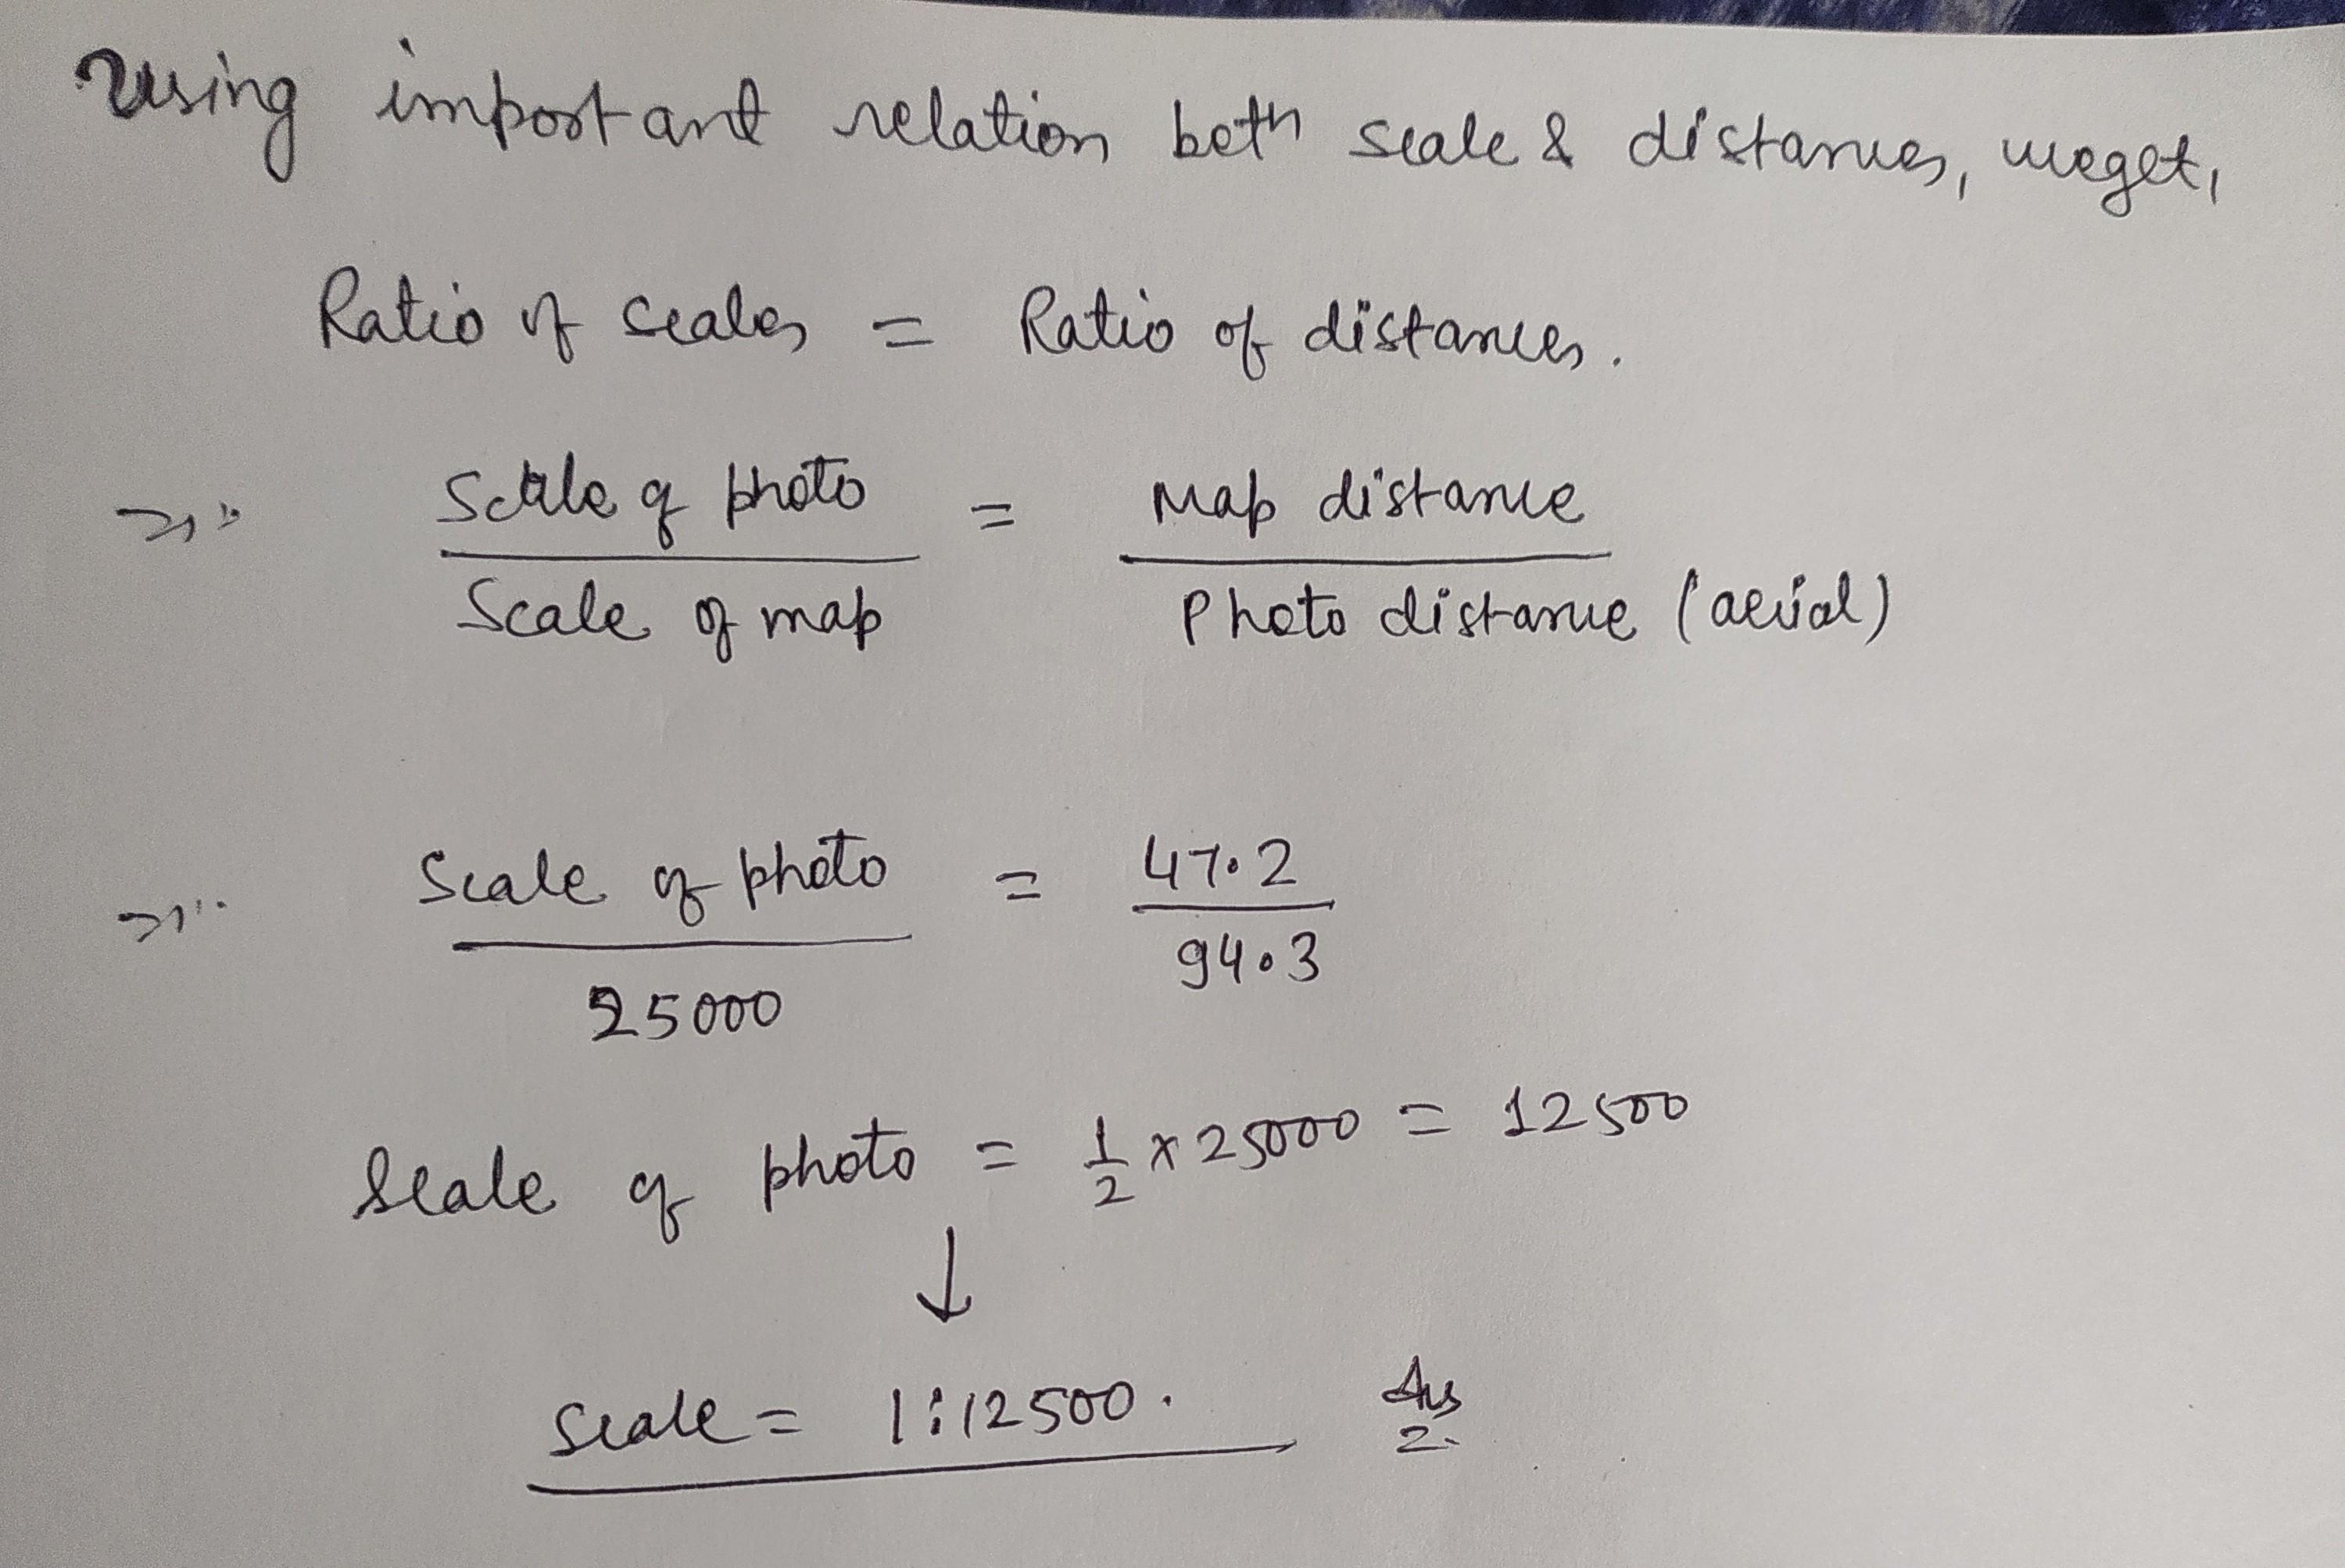 Using important relation betn scale & distances, we get,
Ratio of scales = Ratio of distances.
⇒ Scale of photo / Scale of map = Map distance / Photo distance (aerial)
⇒ Scale of photo / 25000 = 47.2 / 94.3
Scale of photo = 1/2 x 25000 = 12500
↓
Scale = 1:12500. Ans